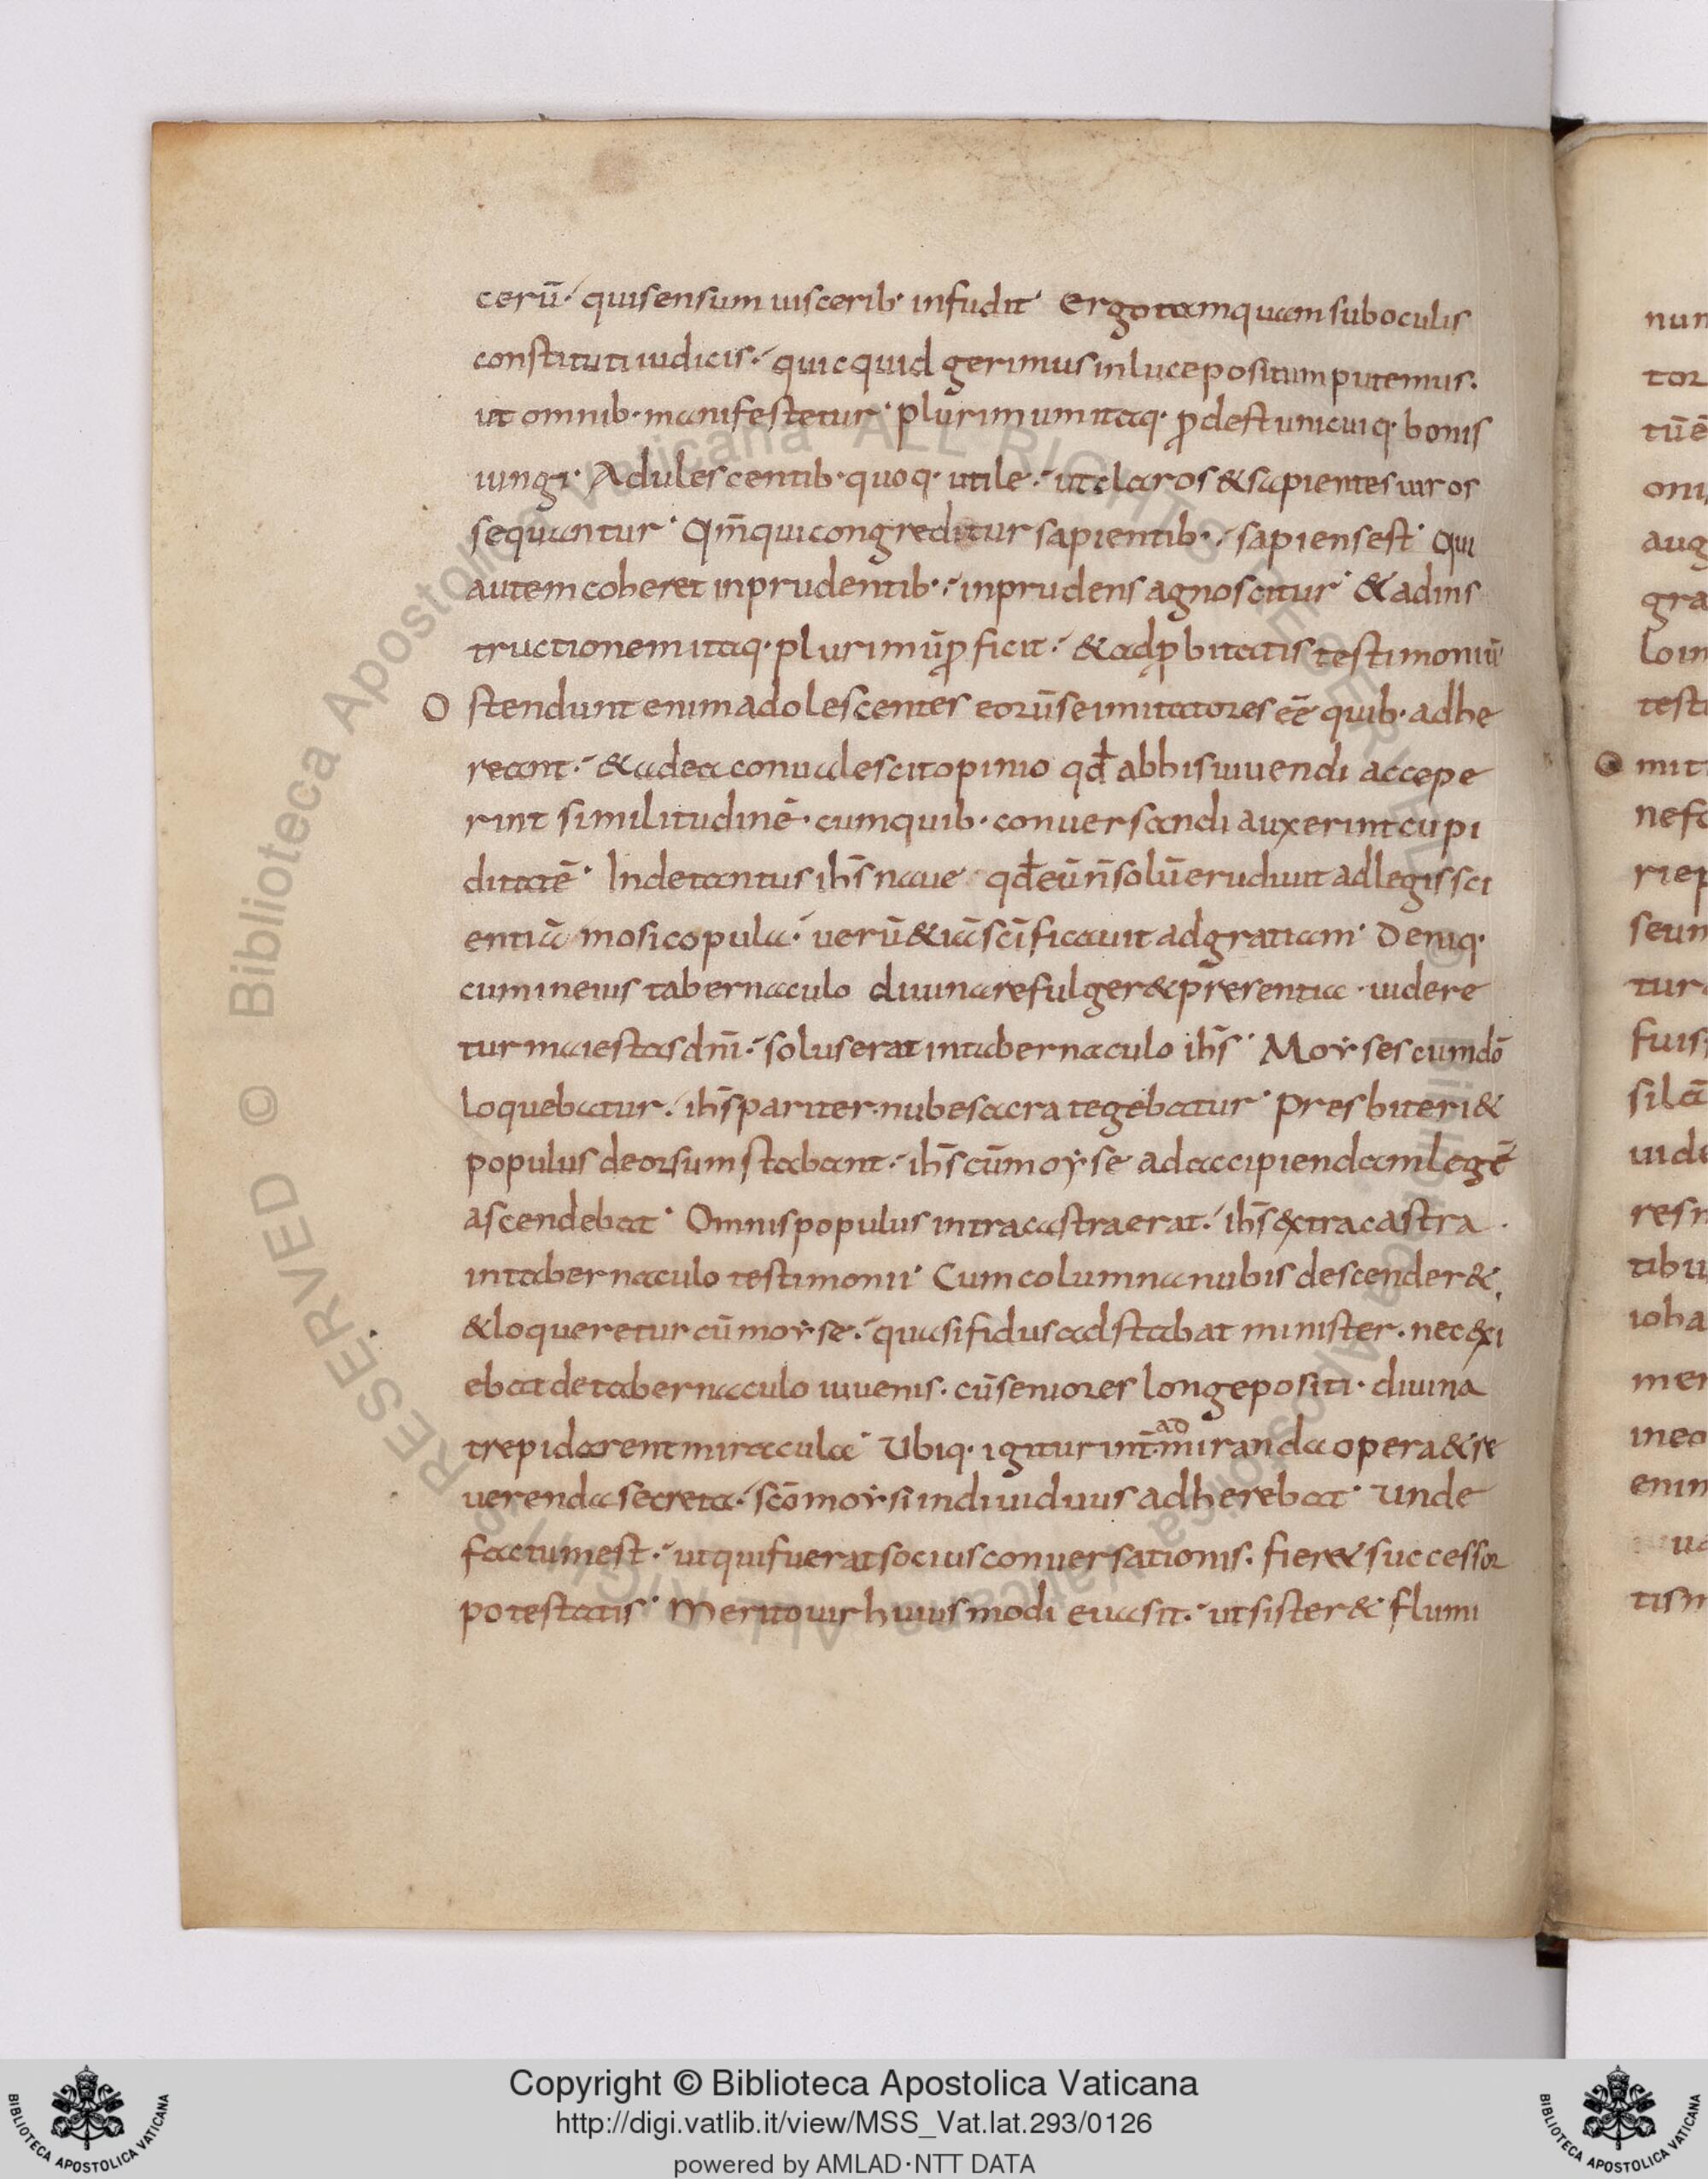 cerū· quisensum uisceribˑ infudit· Ergo tamquam suboculis
constituti iudicis· quicquid gerimus inluce positum putemus·
ut omnibˑ manifestetur· plurimum itaqˑ ꝓdest unicuiqˑ bonis
iungi· Adulescentibˑ quoqˑ utile· ut claros & sapientes uiros
sequantur· Qm̄ qui congreditur sapientibˑ sapiens est· Qui
autem coheret inprudentibˑ inprudens agnoscitur· & ad ins
tructionem itaqˑ plurimū ꝓficit· & ad ꝓbitatis testimoniū
Ostendunt enim adolescentes eorū se imitatores eē quibˑ adhe
reant· & ad ea conualescit opinio qd̄ abhis uiuendi accepe
rint similitudinē· cumquibˑ conuersandi auxerint cupi
ditatē· Inde tantus ih̄s naue qd̄ eū n̄ solū erudiuit ad legis sci
entiā mosi copula· uerū & iā sc̄ificauit ad gratiam· Deniqˑ
cum in eius tabernaculo diuina refulger& p̄rerentia· uidere
tur maiestas dn̄i· solus erat in tabernaculo ih̄s· Moẏses cum dō
loquebatur· ih̄s pariter nube sacra tegebatur· Presbiteri &
populus deorsum stabant· ih̄s cū moẏse ad accipiendam legē
ascendebat· Omnis populus intra castra erat· ih̄s &tra castra·
in tabernaculo testimonii· Cum columna nubis descender&,
& loqueretur cū moẏse· quasi fidus adstabat minister· nec &i
ebat de tabernaculo iuuenis· cū seniores longe positi· diuina
trepidarent miracula· Ubiqˑ igitur int̄ admiranda opera & re
uerenda secreta· sc̄o moẏsi indiuiduus adherebat· Unde
factum est· ut qui fuerat socius conuersationis· fier& successor
potestatis· Merito uir huiusmodi euasit· ut sister& flumi
num
tor
tūē
oni
aug
gra
loin
testi
mit
nefa
riep
seun
tura
fuis
silā
uide
resn
tibu
ioha
mer
inea
enim
ua
tism
Copyright © Biblioteca Apostolica Vaticana
http://digi.vatlib.it/view/MSS_Vat.lat.293/0126
powered by AMLAD·NTT DATA
BIBLIOTECA APOSTOLICA VATICANA
BIBLIOTECA APOSTOLICA VATICANA
© Biblioteca Apostolica Vaticana ALL RIGHTS RESERVED
© Biblioteca Apostolica Vaticana ALL RIGHTS RESERVED